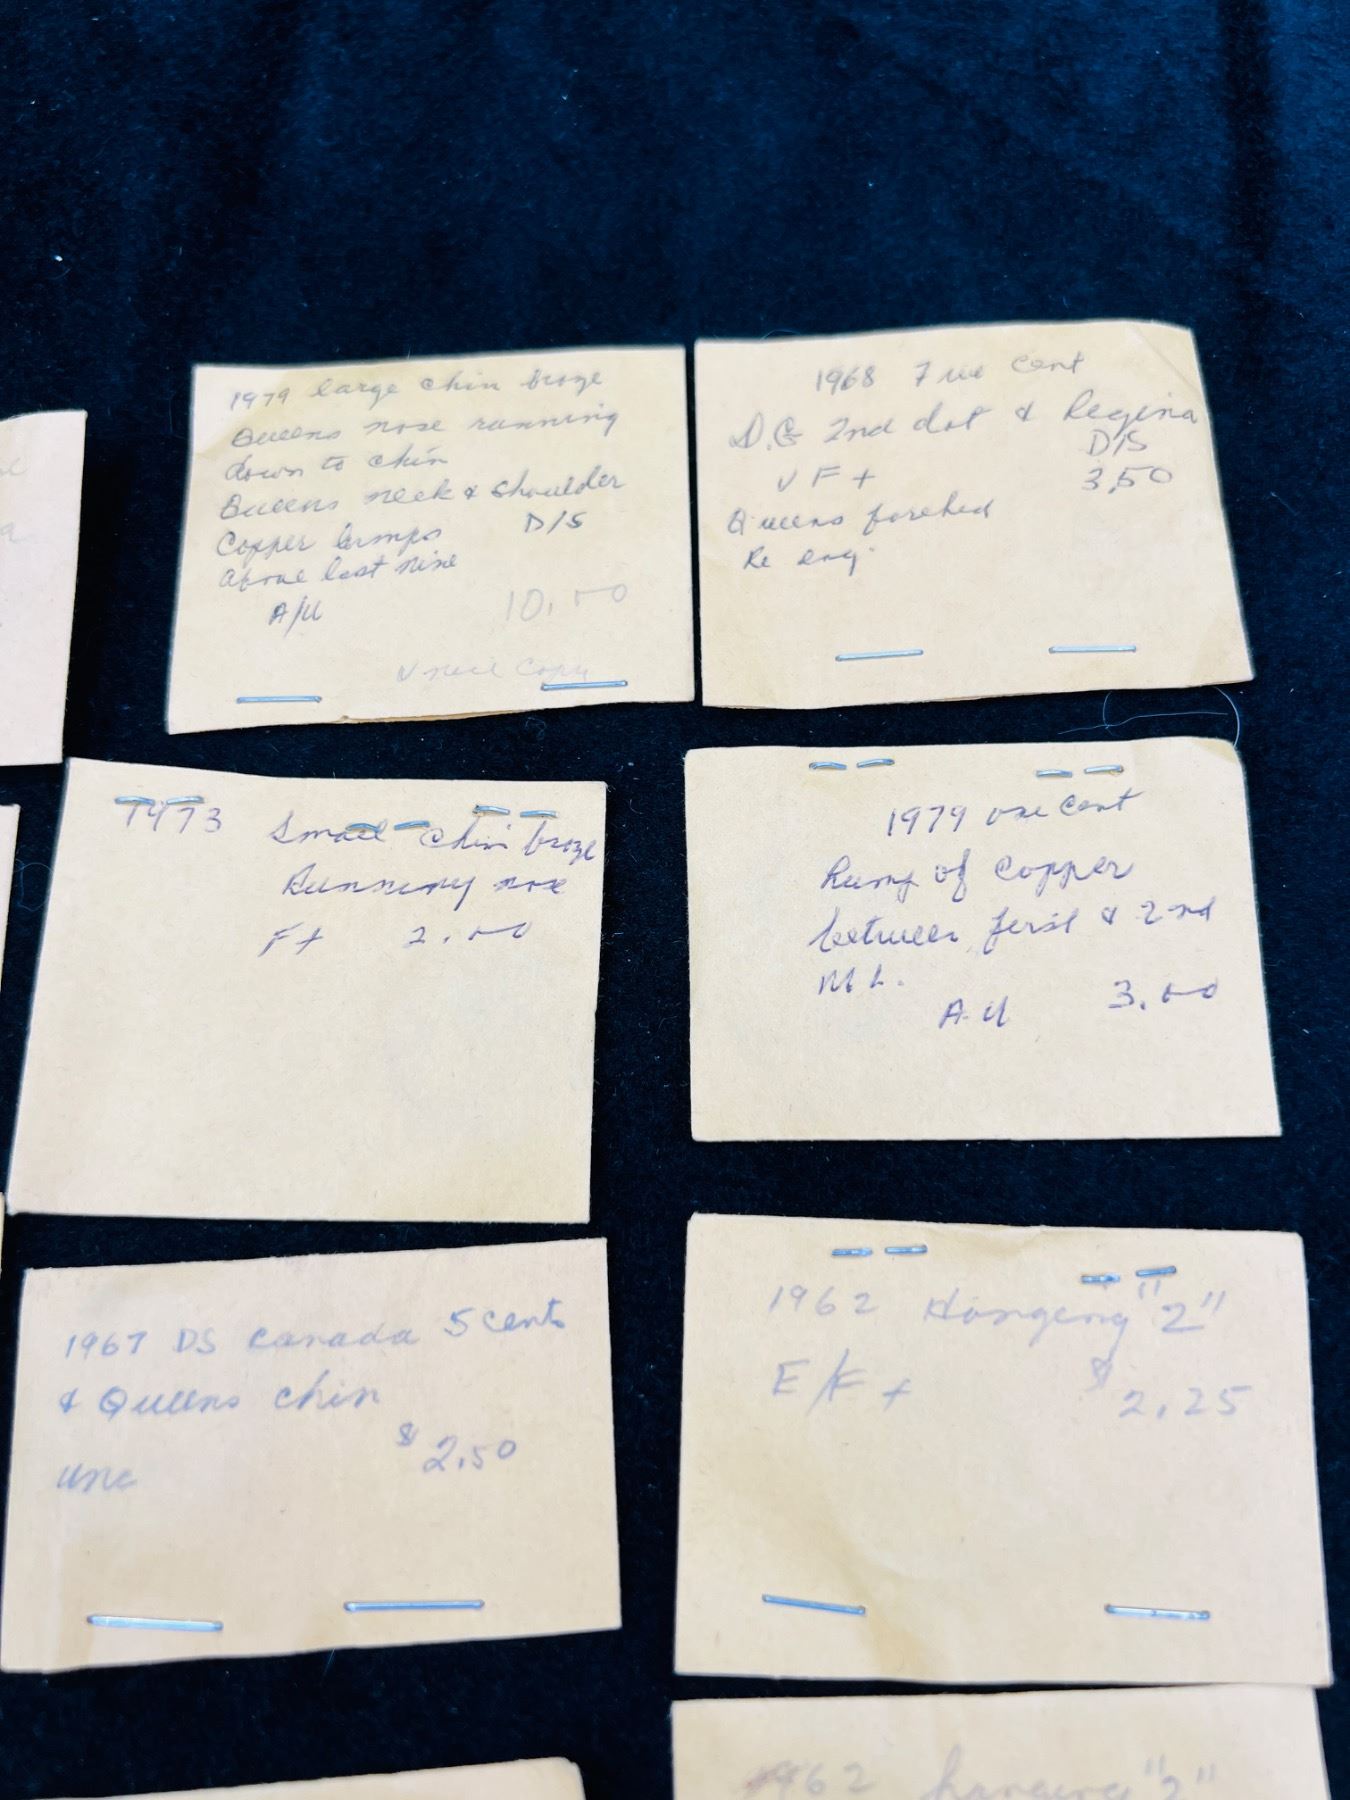 1979 large chin broze
Queens nose running
down to chin
Queens neck & shoulder
Copper bumps D/S
above last nine
A/U 10.00
copy
1968 Five cent
D.G 2nd dot & Regina
D/S
VF+ 3,50
Queens forehed
Re eng.
1973 Small chin broze
Running nose
F+ 2.00
1979 one cent
Bump of copper
between first & 2nd
M L.
A-U 3.00
1967 DS Canada 5 cents
& Queens chin
$2.50
unc
1962 Hanging "2"
E/F + $2.25
1962 hanging "2"